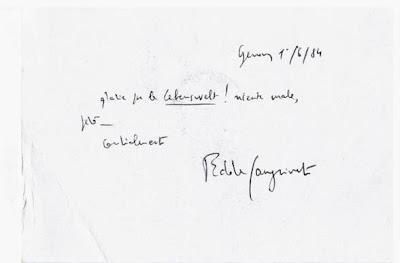 Genova, 1°/6/84
grazie per la Lebenswelt! niente male,
però_
cordialmente
Sanguineti